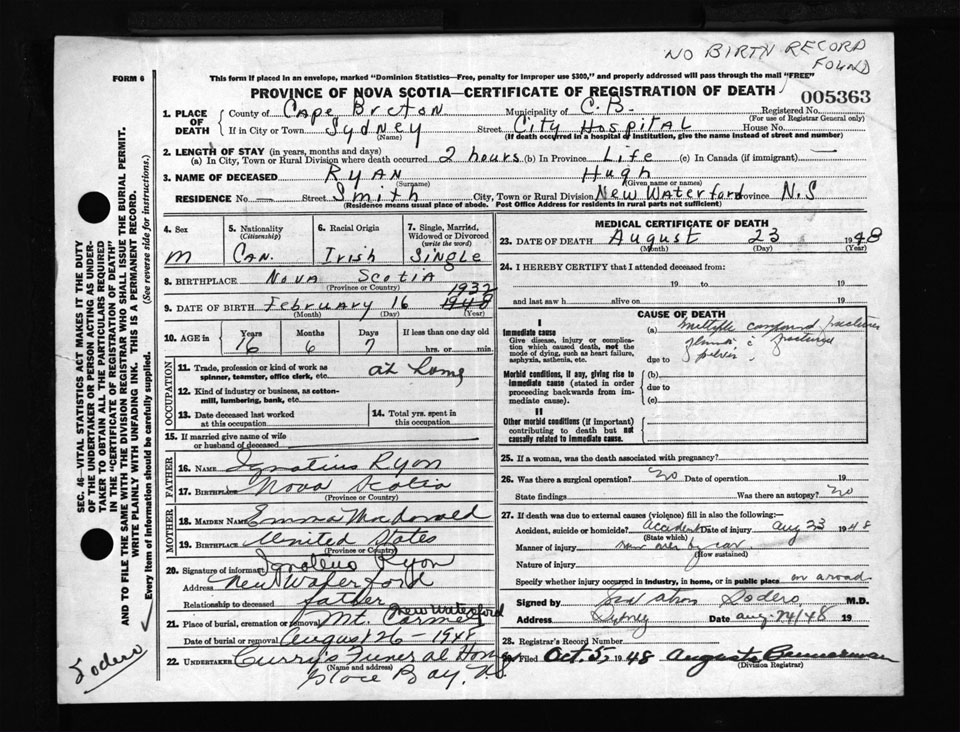 NO BIRTH RECORD
FOUND
FORM 6
This form if placed in an envelope, marked "Dominion Statistics—Free, penalty for improper use $300," and properly addressed will pass through the mail "FREE"
PROVINCE OF NOVA SCOTIA—CERTIFICATE OF REGISTRATION OF DEATH
005363
1. PLACE OF DEATH
County of Cape Breton Municipality of C.B. Registered No.
(For use of Registrar General only)
If in City or Town Sydney Street City Hospital House No.
(Name) (If death occurred in a hospital or institution, give the name instead of street and number)
2. LENGTH OF STAY (in years, months and days)
(a) In City, Town or Rural Division where death occurred 2 hours (b) In Province Life (c) In Canada (if immigrant) —
3. NAME OF DECEASED RYAN Hugh
(Surname) (Given name or names)
RESIDENCE No. — Street Smith City, Town or Rural Division New Waterford Province N.S
(Residence means usual place of abode. Post Office Address for residents in rural parts not sufficient)
4. Sex
M
5. Nationality
(Citizenship)
Can.
6. Racial Origin
Irish
7. Single, Married, Widowed or Divorced
(write the word)
Single
8. BIRTHPLACE Nova Scotia
(Province or Country)
1932
9. DATE OF BIRTH February 16 1948
(Month) (Day) (Year)
10. AGE in
Years Months Days If less than one day old
16 6 7 hrs. or min.
OCCUPATION
11. Trade, profession or kind of work as spinner, teamster, office clerk, etc. at home
12. Kind of industry or business, as cotton-mill, lumbering, bank, etc.
13. Date deceased last worked at this occupation
14. Total yrs. spent in this occupation
15. If married give name of wife or husband of deceased
FATHER
16. NAME Ignatius Ryan
17. BIRTHPLACE Nova Scotia
(Province or Country)
MOTHER
18. MAIDEN NAME Emma MacDonald
19. BIRTHPLACE United States
(Province or Country)
20. Signature of informant Ignatius Ryan
Address New Waterford
Relationship to deceased father
21. Place of burial, cremation or removal Mt. Carmel New Waterford
Date of burial or removal August 26 - 1948
22. UNDERTAKER Curry's Funeral Home
(Name and address)
Glace Bay, N.S.
MEDICAL CERTIFICATE OF DEATH
23. DATE OF DEATH August 23 1948
(Month) (Day) (Year)
24. I HEREBY CERTIFY that I attended deceased from:
19 to 19
and last saw h alive on 19
CAUSE OF DEATH
I
Immediate cause
Give disease, injury or complication which caused death, not the mode of dying, such as heart failure, asphyxia, asthenia, etc.
(a) multiple compound fractures
femur fractured
due to pelvis
Morbid conditions, if any, giving rise to immediate cause (stated in order proceeding backwards from immediate cause).
(b)
due to
(c)
II
Other morbid conditions (if important) contributing to death but not causally related to immediate cause.
25. If a woman, was the death associated with pregnancy?
26. Was there a surgical operation? no Date of operation 19
State findings Was there an autopsy? no
27. If death was due to external causes (violence) fill in also the following:—
Accident, suicide or homicide? Accident Date of injury Aug 23 1948
(State which)
Manner of injury run over by car
(How sustained)
Nature of injury
Specify whether injury occurred in industry, in home, or in public place on a road
Signed by Sodero M.D.
Address Sydney Date aug 24/48 19
28. Registrar's Record Number
Filed Oct. 5, 1948 Augusta Bannerman
(Division Registrar)
SEC. 46—VITAL STATISTICS ACT MAKES IT THE DUTY
OF THE UNDERTAKER OR PERSON ACTING AS UNDERTAKER
TO OBTAIN ALL THE PARTICULARS REQUIRED
IN THE "CERTIFICATE OF REGISTRATION OF DEATH"
AND TO FILE THE SAME WITH THE DIVISION REGISTRAR WHO SHALL ISSUE THE BURIAL PERMIT.
WRITE PLAINLY WITH UNFADING INK. THIS IS A PERMANENT RECORD.
Every item of Information should be carefully supplied. (See reverse side for instructions.)
Sodero